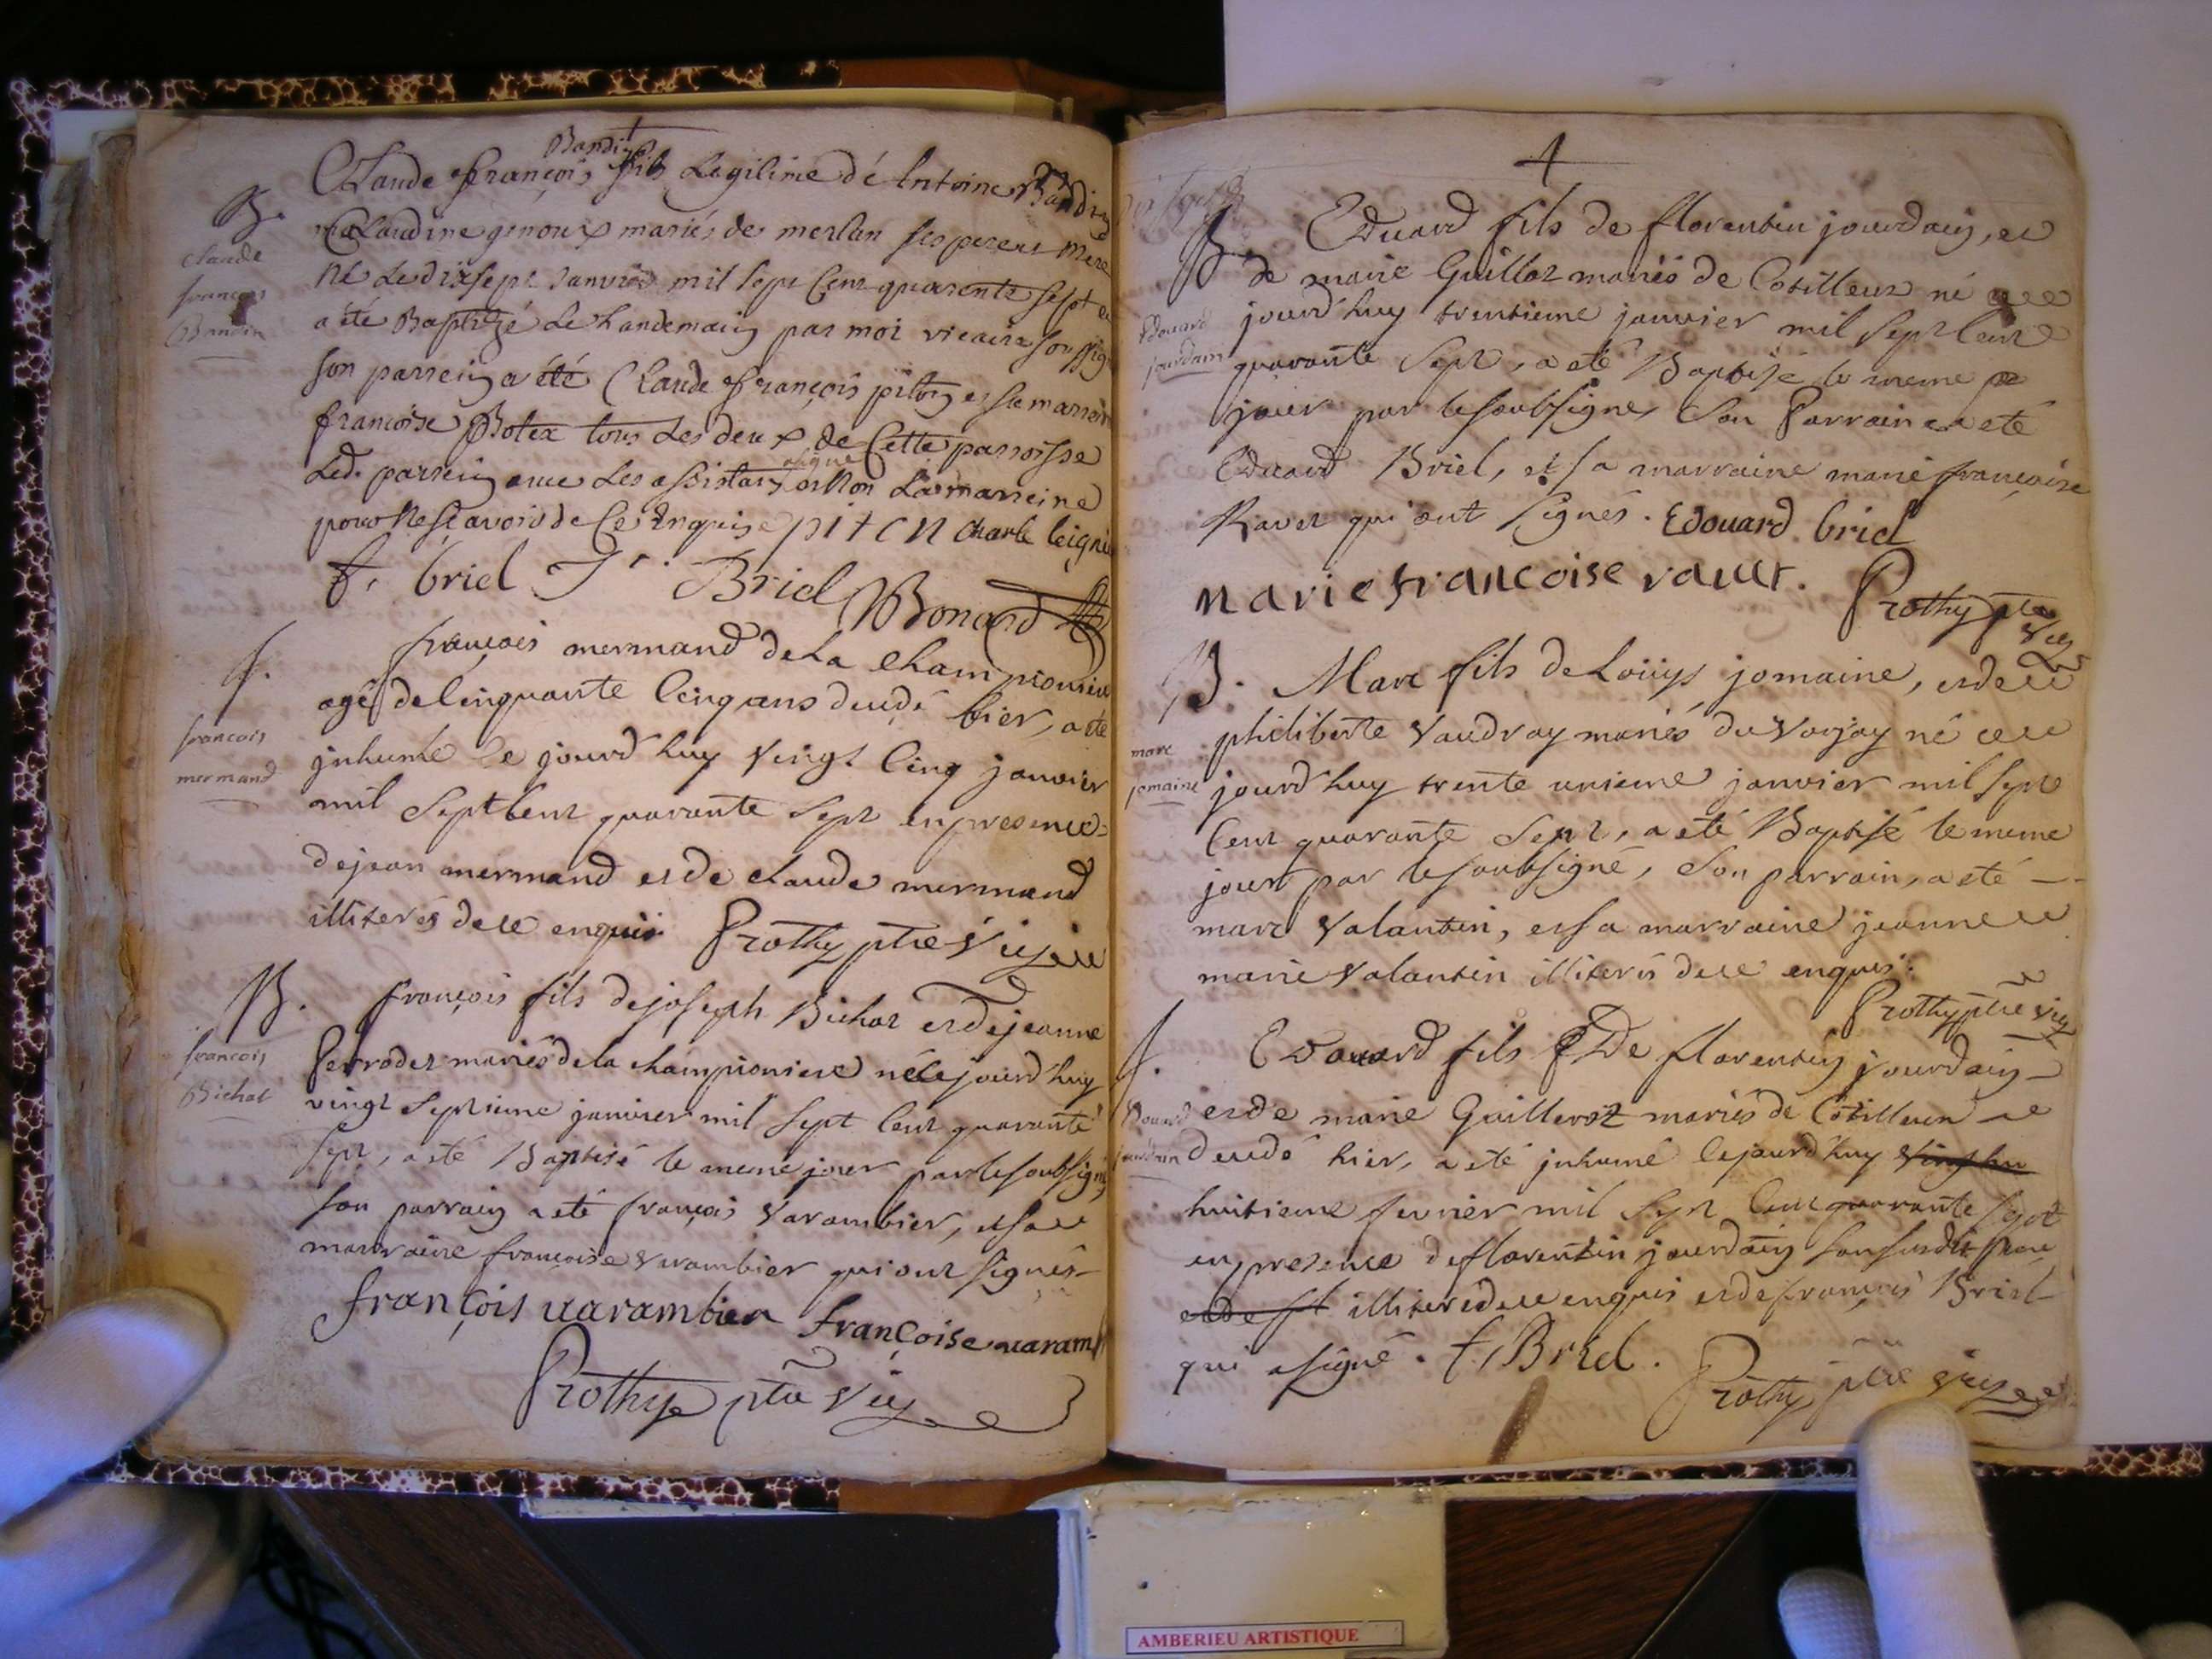 Bandin
Claude françois fils Legitime dé Antoine Bandin
B.
et Claudine genoux mariés de merlan ses pere et mere
claude
françois
Bandin
Né Le dixsept Janvier mil sept Cent quarente sept et
a été Baptizé Le Landemain par moi vicaire soussigné
son parrein a été Claude françois piton et sa marreine
françoise Botex tous Les deux de Cette parroisse
Led. parrein avec Les assistans a signé et Non La marreine
pour Ne sçavoir de Ce Enquise piton Charle
f. briel J. Briel Bonard
S.
françois mermand de La Championiere
agé de Cinquante Cinq ans decedé hier, a été
françois
mermand
jnhumé Ce jourd'huy vingt Cinq janvier
mil Sept Cent quarante Sept en presence
de jean mermand et de claude mermand
illiterés de ce enquis Prothy ptre vic
B.
françois fils de joseph Bichat et de jeanne
françois
Bichat
Perrodet mariés de la championiere né Ce jourd'huy
vingt Septieme janvier mil Sept Cent quarante
Sept, a eté Baptisé le meme jour par le soubsigné
son parrain a eté françois varambier, et sa
marraine françoise varambier qui ont signés
françois varambier françoise varamb
Prothy ptre vic
4
B.
Eduard fils de florentin jourdain, et
de marie Guillot mariés de Cotilleux né ce
Edouard
jourdain
jourd'huy trentieme janvier mil Sept Cent
quarante Sept, a eté Baptisé le meme
jour par le soubsigné, Son Parrain a eté
Eduard Briel, et sa marraine marie françoise
Ravet qui ont signés. Edouard briel
marie francoise ravet.
Prothy ptre
vic
B. Marc fils de Loüys jomaine, et de
marc
jomaine
philiberte Vaudray mariés du Varjay né ce
jourd'huy trente unieme janvier mil Sept
Cent quarante Sept, a eté Baptisé le meme
jour par le soubsigné, Son parrain, a eté
marc Valantin, et sa marraine jeanne
marie Valantin illiterés de ce enquis.
Prothy ptre vic
S.
Edouard fils De florentin jourdain
Edouard
jourdain
et de marie Guillerot mariés de Cotilleux
decedé hier, a eté jnhumé Ce jourd'huy
huitieme fevrier mil Sept Cent quarante Sept
en presence de florentin jourdain son susdit pere
illiteré de ce enquis et de françois Briel
qui a signé. f. Briel.
Prothy ptre vic
AMBERIEU ARTISTIQUE